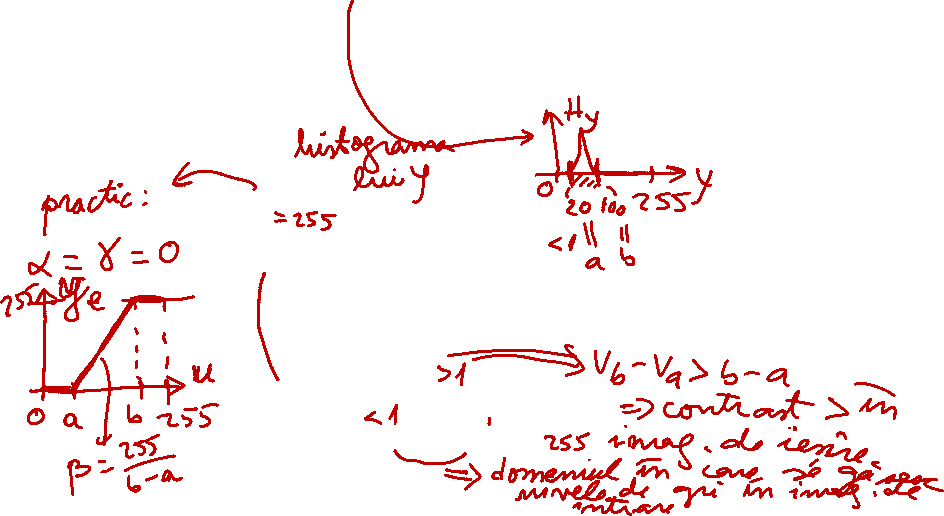 Hy
histograma
lui Y
0 20 100 255 y
<1 || ||
a b
practic:
= 255
α = γ = 0
255 ye
u
0 a b 255
β = 255/(b-a)
>1 => Vb - Va > b - a
=> contrast > în
<1
255 imag. de ieșire.
=> domeniul în care se găsesc
nivele de gri în imag. de
intrare